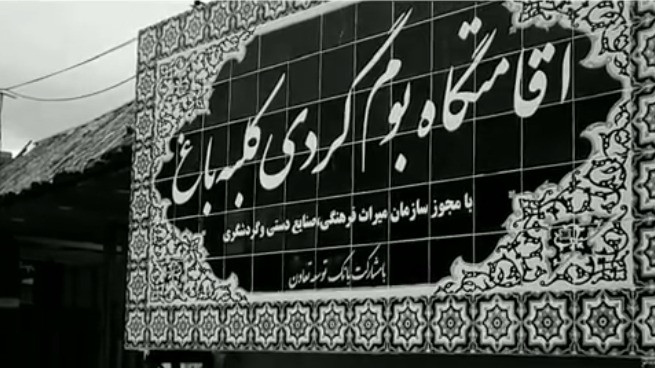 اقامتگاه بوم گردی کلبه باغ
با مجوز سازمان میراث فرهنگی،صنایع دستی وگردشگری
بامشارکت بانک توسعه تعاون